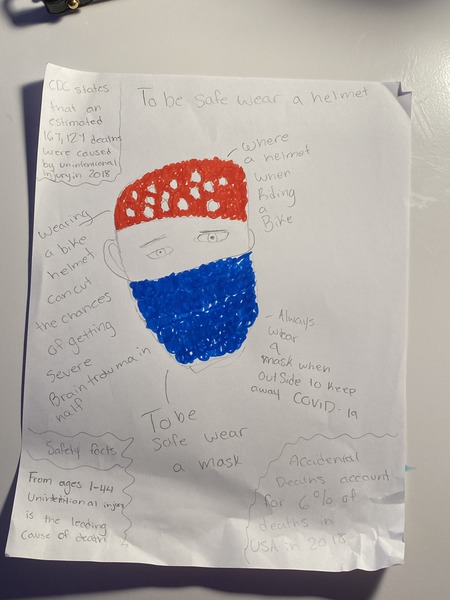 CDC states
that an
estimated
167,127 deaths
were caused
by unintensional
Injury in 2018
To be safe wear a helmet
where
a helmet
when
Riding
a
Bike
Wearing
a bike
helmet
can cut
the chances
of getting
severe
Brain traumain
half
- Always
wear
a
mask when
outside to keep
away COVID-19
To be
safe wear
a mask
Safety facts
From ages 1-44
Unintentional injury
is the leading
cause of death
Accidental
Deaths account
for 6% of
deaths in
USA in 2018